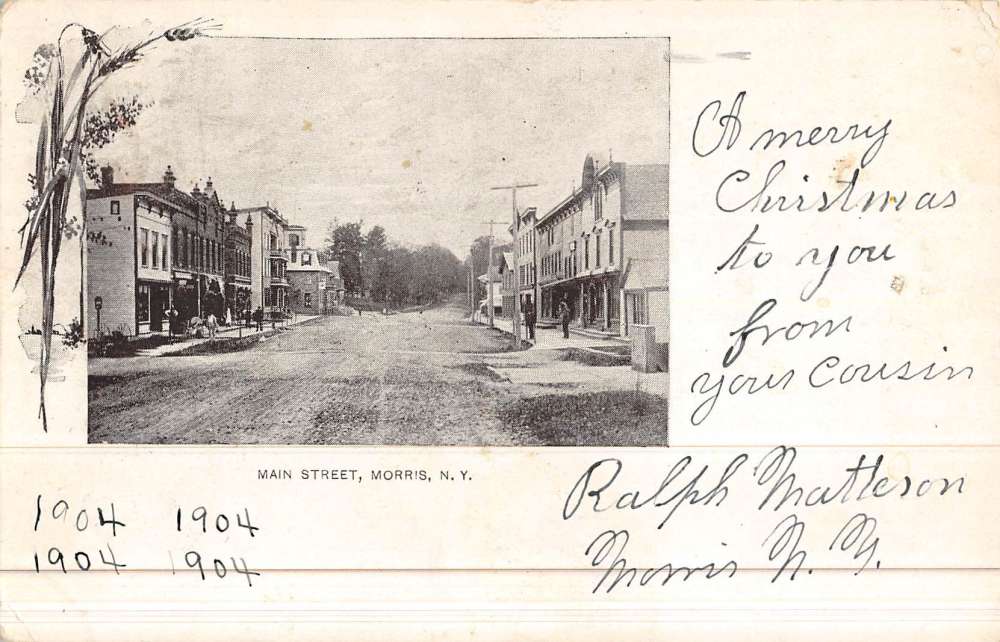 A merry
Christmas
to you
from
your Cousin
MAIN STREET, MORRIS, N. Y.
Ralph Matteson
Morris N. Y.
1904 1904
1904 1904